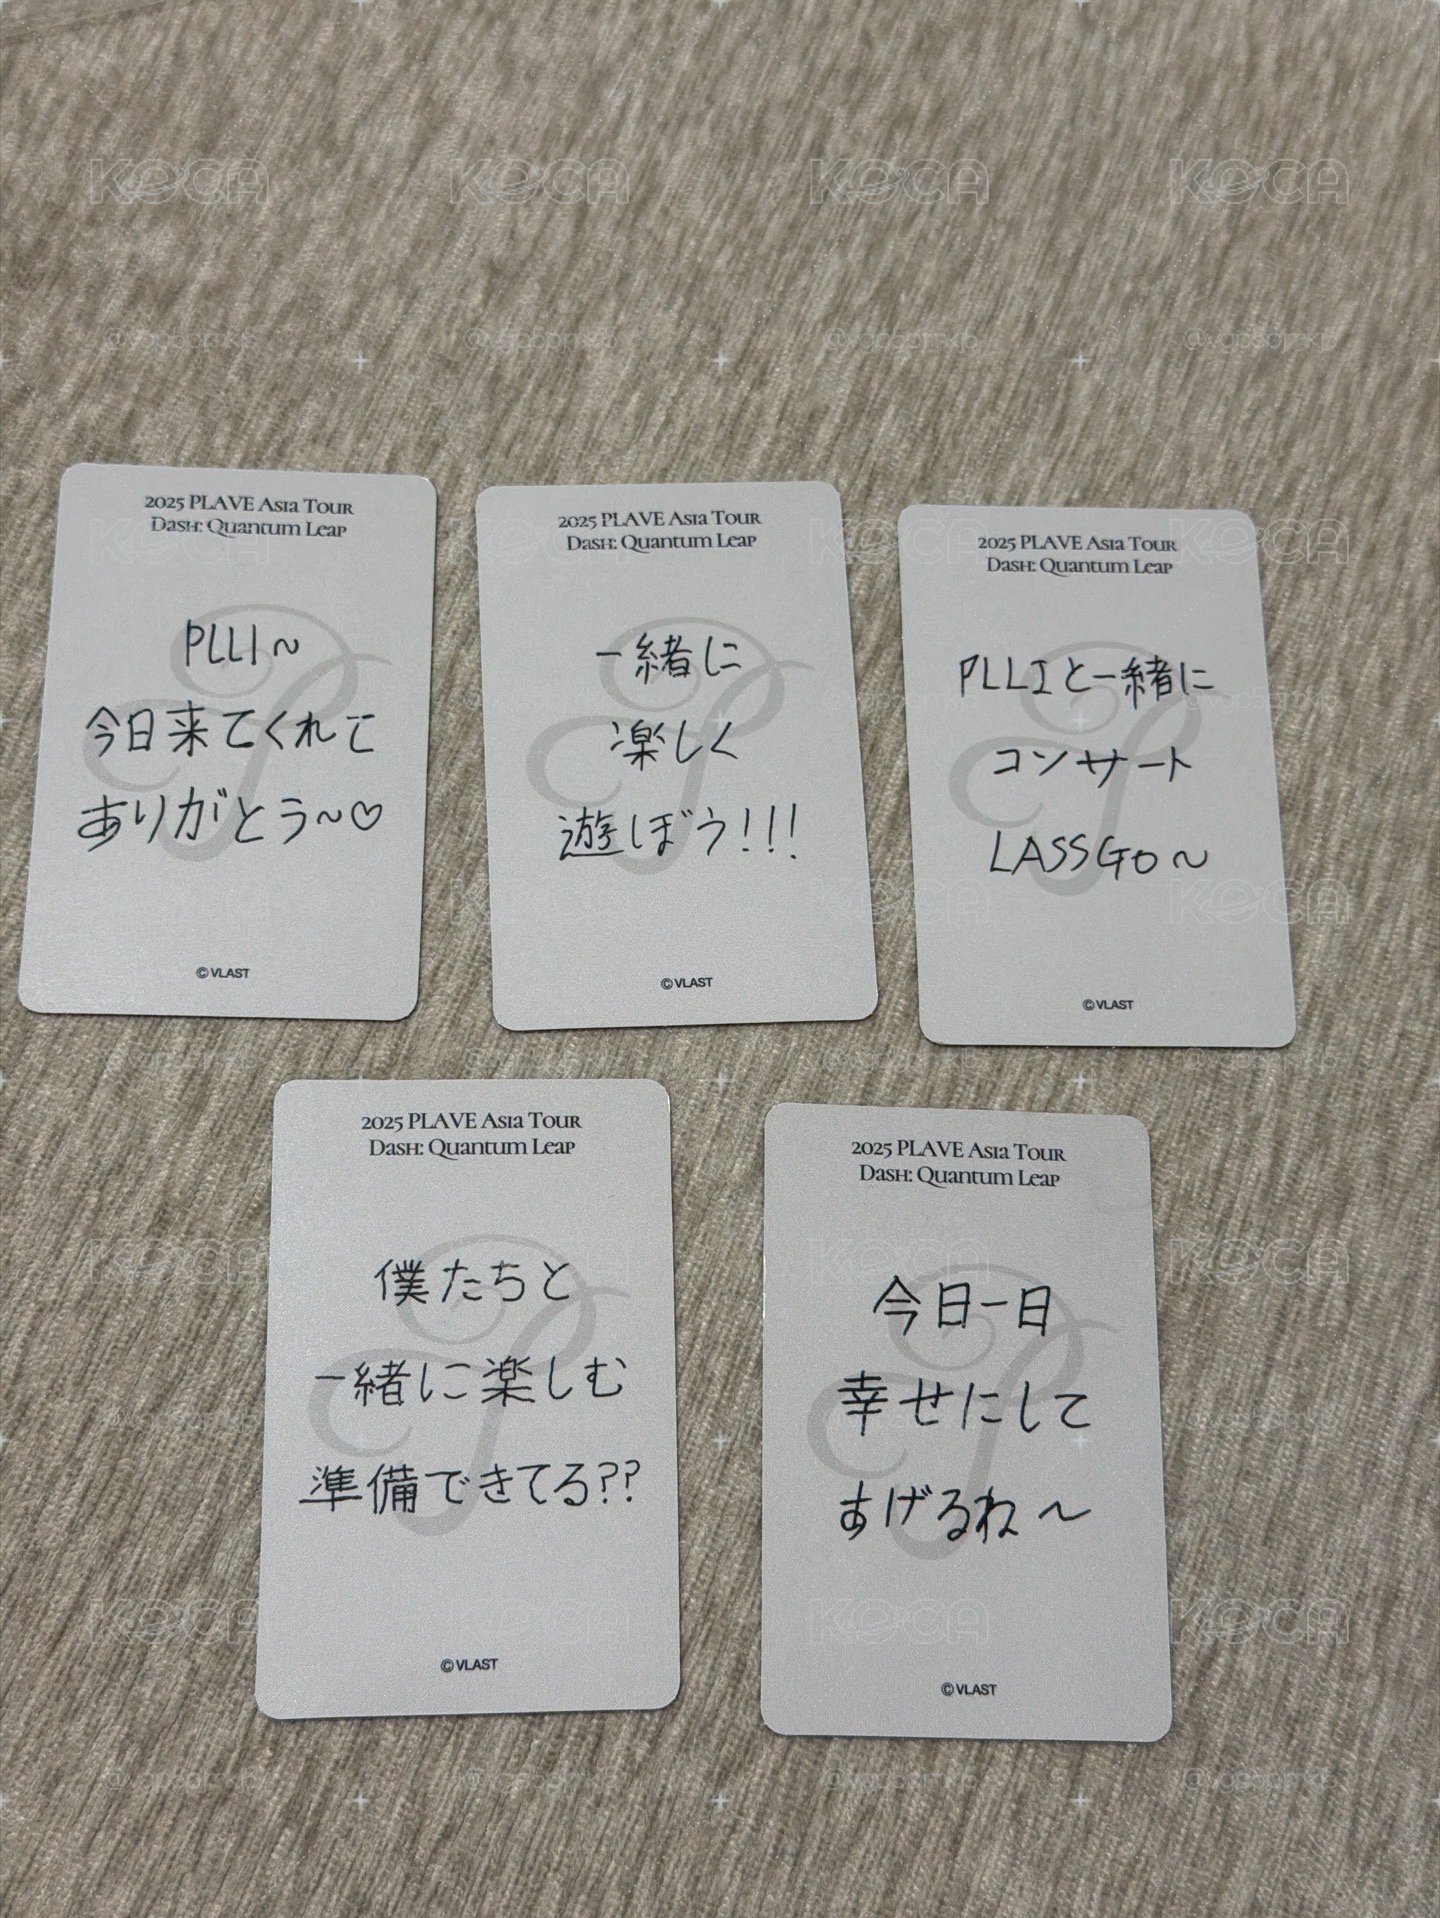 2025 PLAVE Asia Tour
Dash: Quantum Leap
PLLI~
今日来てくれて
ありがとう~♡
©VLAST
2025 PLAVE Asia Tour
Dash: Quantum Leap
一緒に
楽しく
遊ぼう!!!
©VLAST
2025 PLAVE Asia Tour
Dash: Quantum Leap
PLLIと一緒に
コンサート
LASSGO~
©VLAST
2025 PLAVE Asia Tour
Dash: Quantum Leap
僕たちと
一緒に楽しむ
準備できてる??
©VLAST
2025 PLAVE Asia Tour
Dash: Quantum Leap
今日一日
幸せにして
あげるね~
©VLAST
KOCA